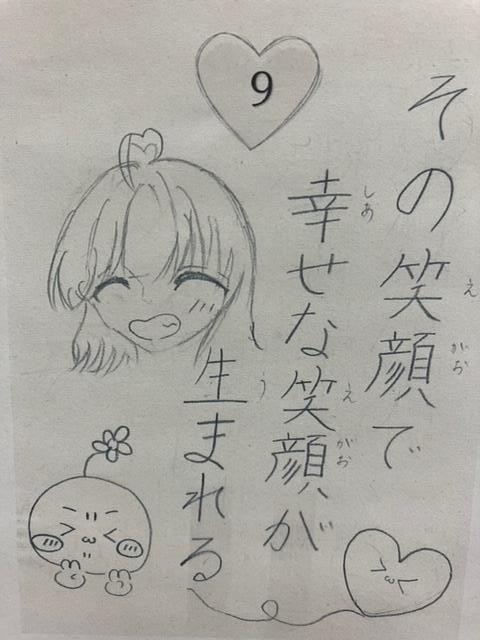 9
その笑顔で
えがお
幸せな笑顔が
しあ
えがお
生まれる
う